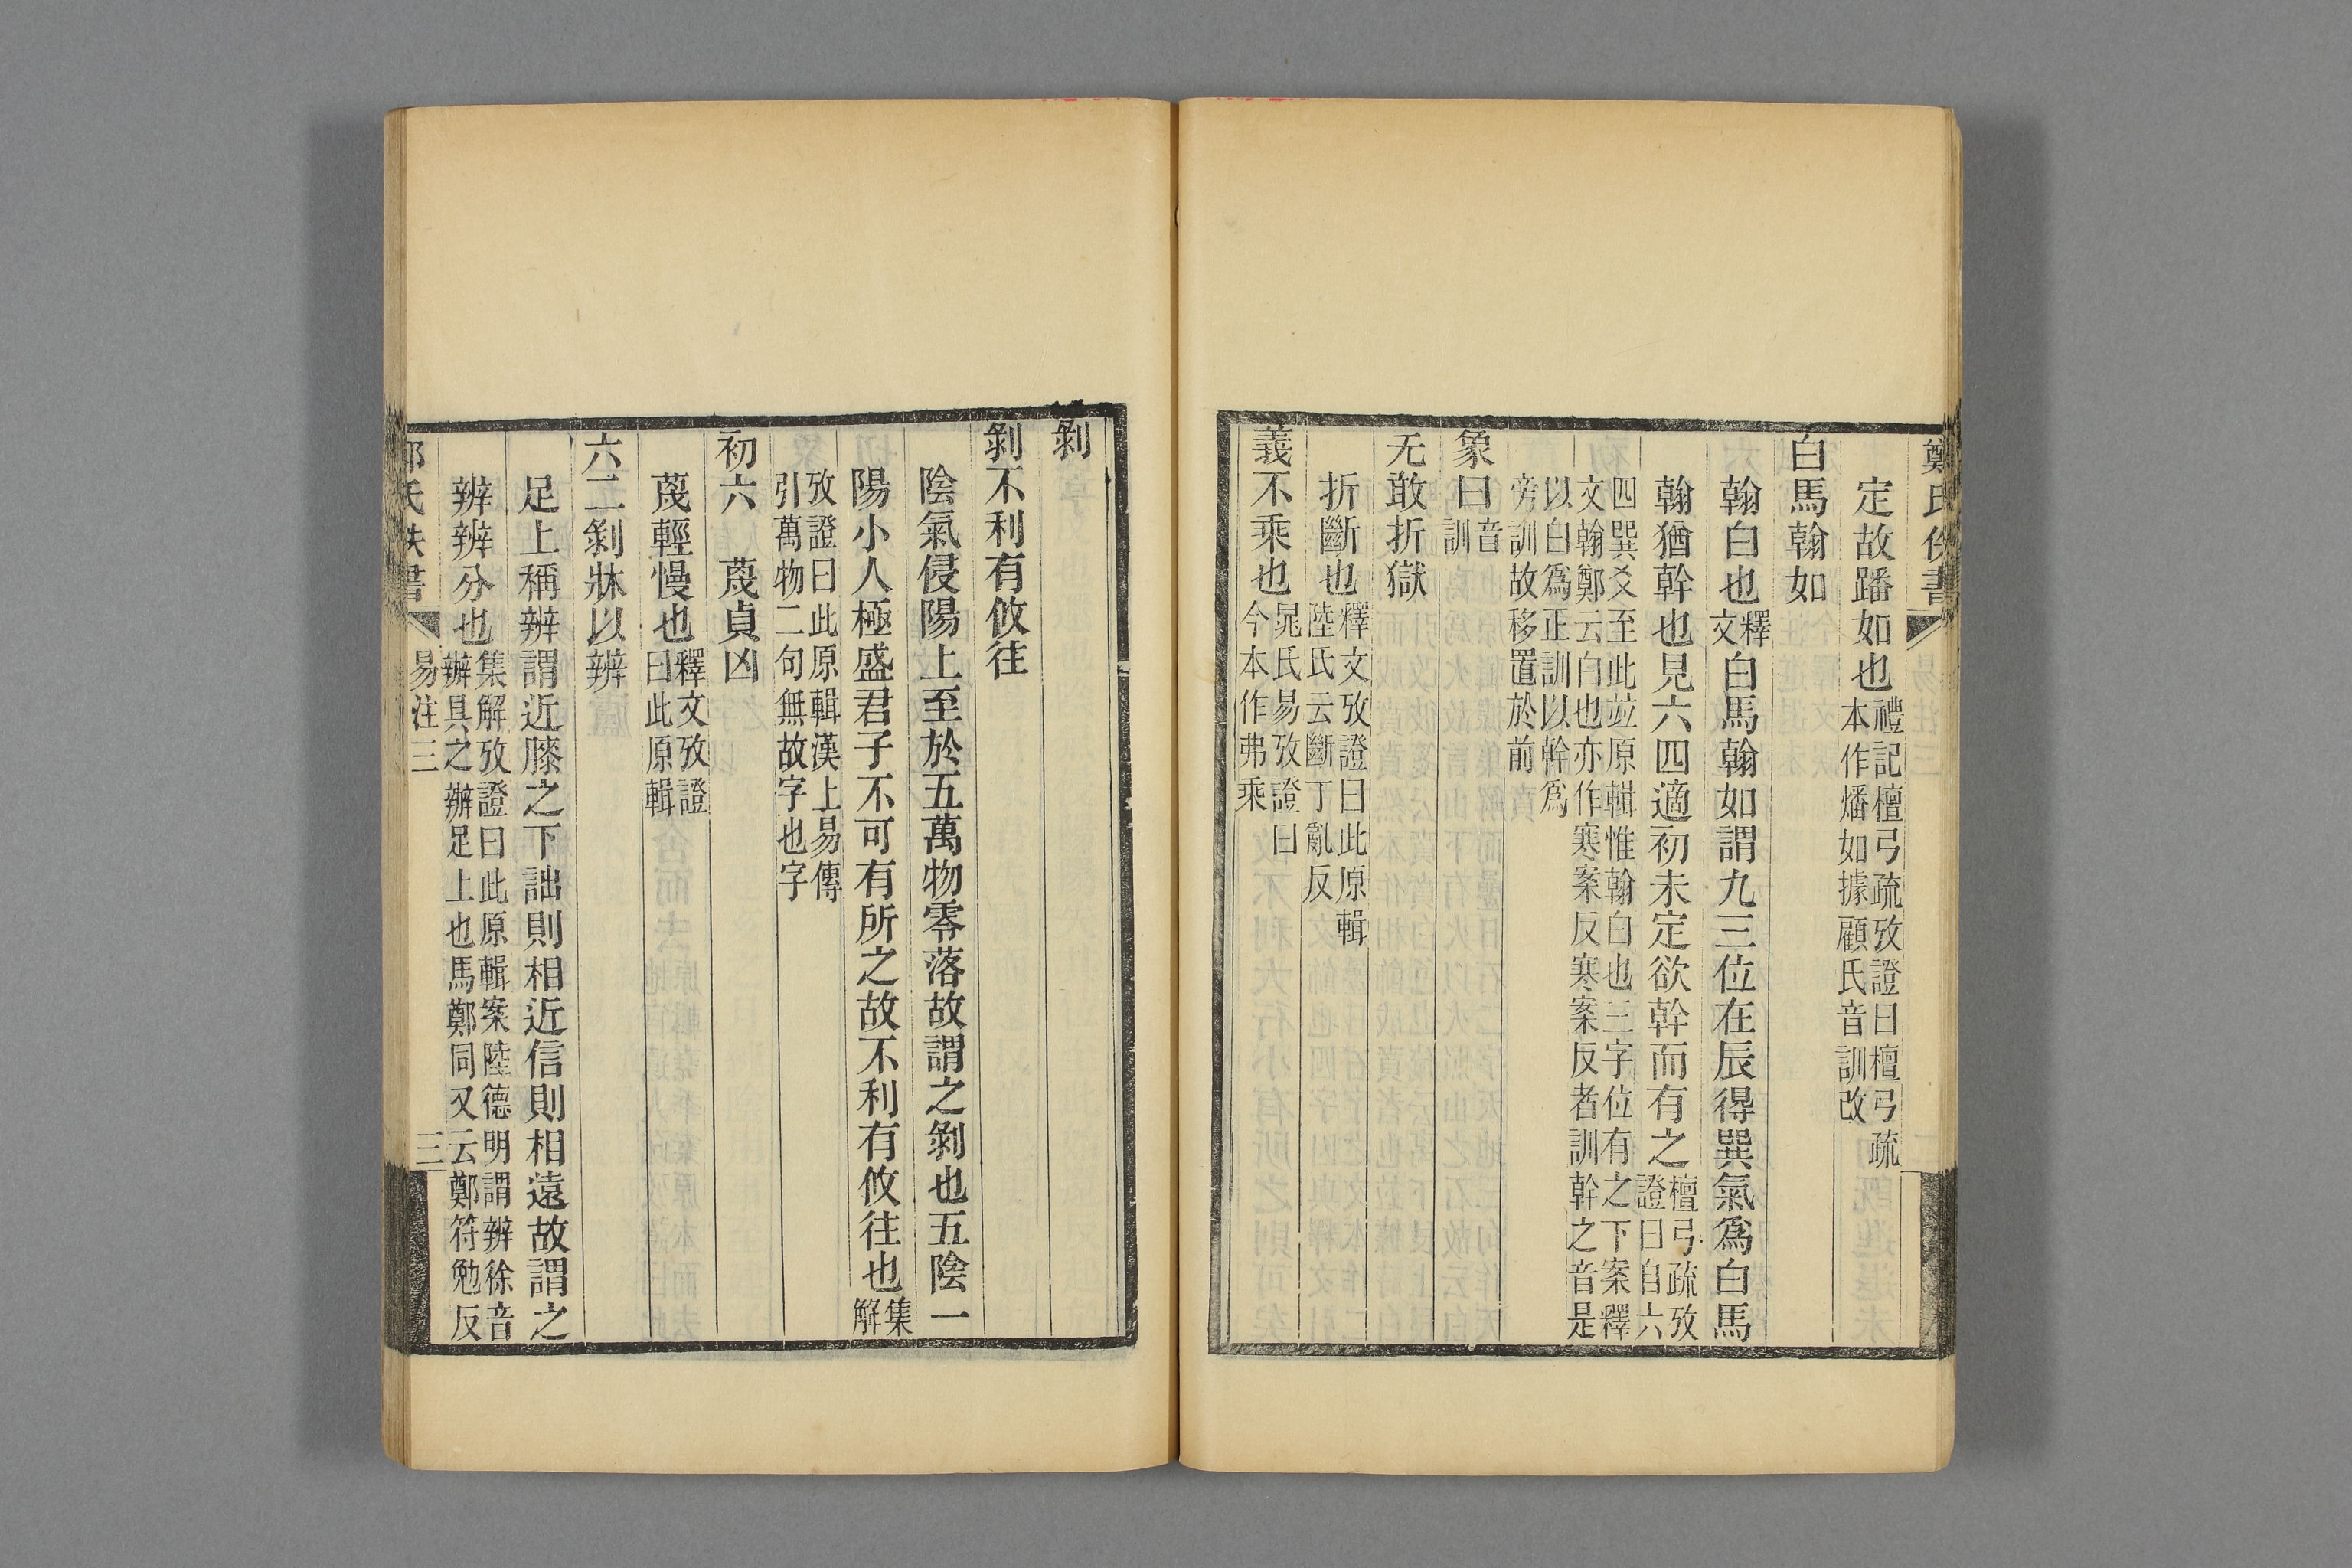 鄭氏佚書
定故蹯如也禮記檀弓疏攷證曰檀弓疏本作燔如據顧氏音訓改
白馬翰如
翰白也釋文白馬翰如謂九三位在辰得巽氣爲白馬
翰猶幹也見六四適初未定欲幹而有之檀弓疏攷證曰自六
四巽爻至此竝原輯惟翰白也三字位有之下案釋
文翰鄭云白也亦作寒案反寒案反者訓幹之音是
以白爲正訓以幹爲
旁訓故移置於前
象曰音訓
无敢折獄
折斷也釋文攷證曰此原輯陸氏云斷丁亂反
義不乘也晁氏易攷證曰今本作弗乘
剝
剝不利有攸往
陰氣侵陽上至於五萬物零落故謂之剝也五陰一
陽小人極盛君子不可有所之故不利有攸往也集解
攷證曰此原輯漢上易傳
引萬物二句無故字也字
初六 蔑貞凶
蔑輕慢也釋文攷證曰此原輯
六二剝牀以辨
足上稱辨謂近膝之下詘則相近信則相遠故謂之
辨辨分也集解攷證曰此原輯案陸德明謂辨徐音辦具之辦足上也馬鄭同又云鄭符勉反
氏佚書
易注三
三